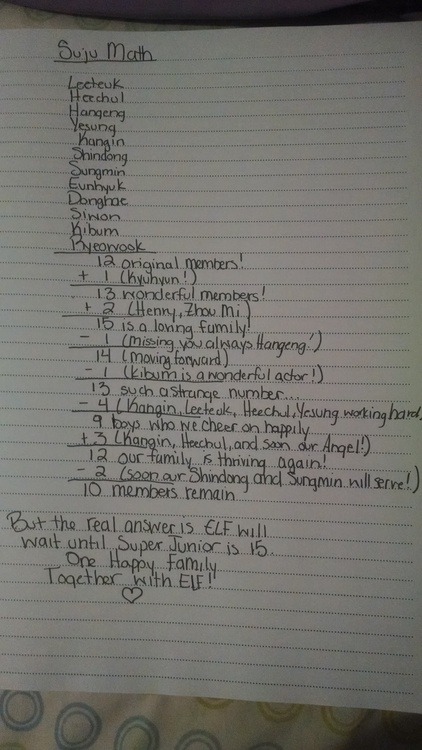 Suju Math
Leeteuk
Heechul
Hangeng
Yesung
Kangin
Shindong
Sungmin
Eunhyuk
Donghae
Siwon
Kibum
Ryeowook
12 original members!
+ 1 (Kyuhyun!)
13 wonderful members!
+ 2 (Henry, Zhou Mi)
15 is a loving family!
- 1 (missing you always Hangeng!')
14 (moving forward)
- 1 (Kibum is a wonderful actor!)
13 such a strange number...
- 4 (Kangin, Leeteuk, Heechul, Yesung working hard,
9 boys who we cheer on happily
+ 3 (Kangin, Heechul, and soon our Angel!)
12 our family is thriving again!
- 2 (soon our Shindong and Sungmin will serve!)
10 members remain
But the real answer is ELF will
wait until Super Junior is 15.
One Happy Family
Together with ELF!